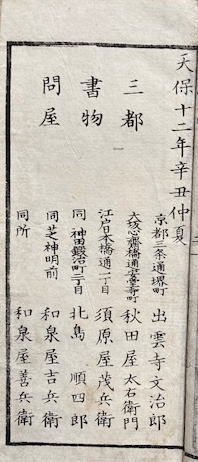 天保十二年辛丑仲夏
三都
書物
問屋
京都三条通堺町
出雲寺文治郎
大坂心斎橋通安堂寺町
秋田屋太右衛門
江戸日本橋通一丁目
須原屋茂兵衛
同神田鍛冶町二丁目
北島順四郎
同芝神明前
和泉屋吉兵衛
同所
和泉屋善兵衛